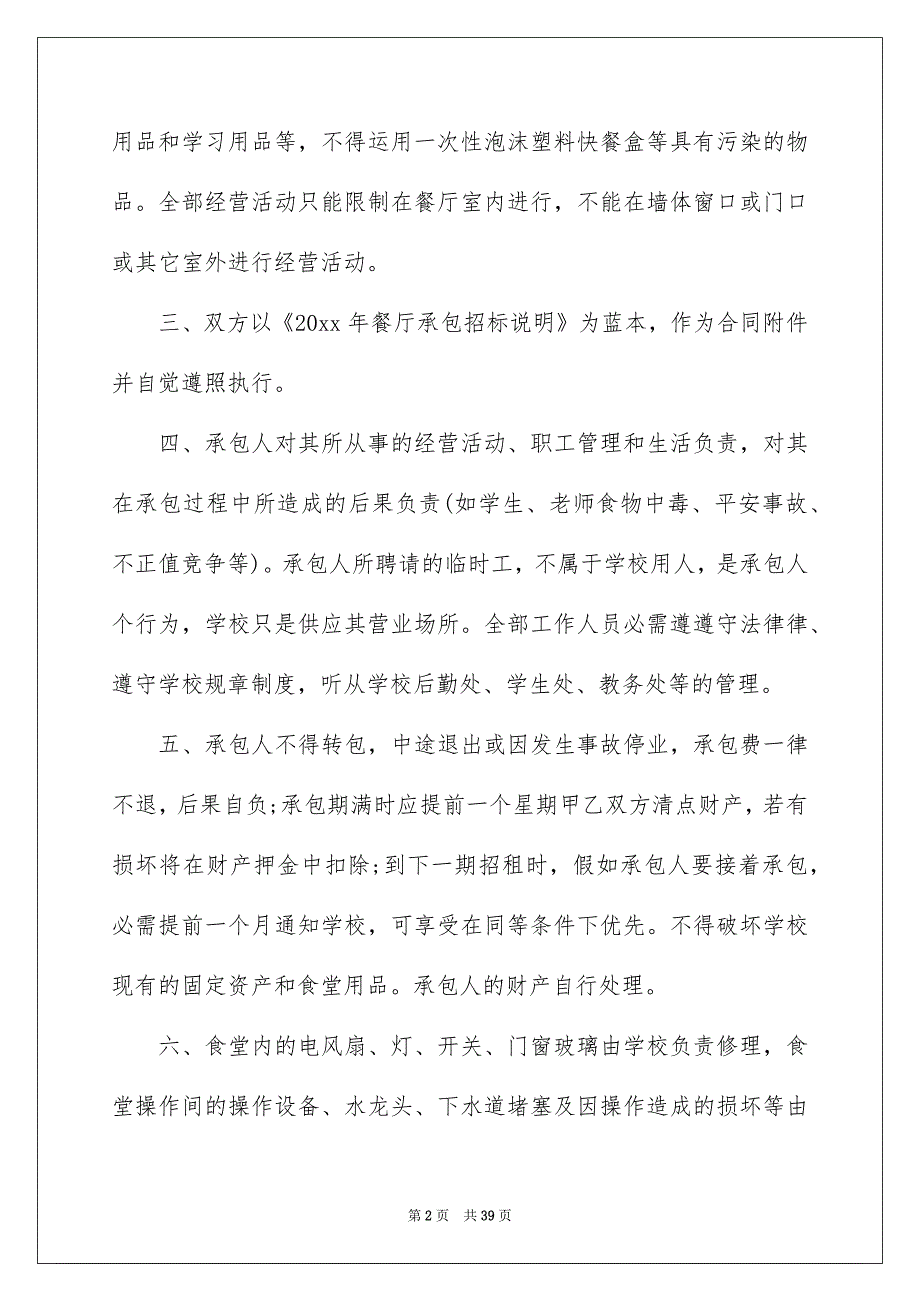 用品和学习用品等，不得运用一次性泡沫塑料快餐盒等具有污染的物
品。全部经营活动只能限制在餐厅室内进行，不能在墙体窗口或门口
或其它室外进行经营活动。
三、双方以《20xx 年餐厅承包招标说明》为蓝本，作为合同附件
并自觉遵照执行。
四、承包人对其所从事的经营活动、职工管理和生活负责，对其
在承包过程中所造成的后果负责(如学生、老师食物中毒、平安事故、
不正值竞争等)。承包人所聘请的临时工，不属于学校用人，是承包人
个行为，学校只是供应其营业场所。全部工作人员必需遵遵守法律律、
遵守学校规章制度，听从学校后勤处、学生处、教务处等的管理。
五、承包人不得转包，中途退出或因发生事故停业，承包费一律
不退，后果自负;承包期满时应提前一个星期甲乙双方清点财产，若有
损坏将在财产押金中扣除;到下一期招租时，假如承包人要接着承包，
必需提前一个月通知学校，可享受在同等条件下优先。不得破坏学校
现有的固定资产和食堂用品。承包人的财产自行处理。
六、食堂内的电风扇、灯、开关、门窗玻璃由学校负责修理，食
堂操作间的操作设备、水龙头、下水道堵塞及因操作造成的损坏等由
第 2 页 共 39 页